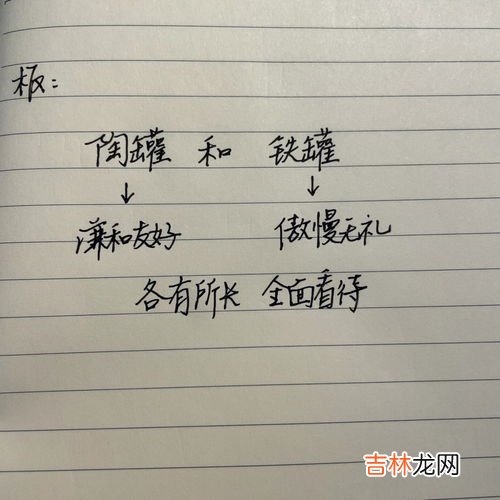 板：
陶罐 和 铁罐
↓ ↓
廉和友好 傲慢无礼
各有所长 全面看待
吉林龙网